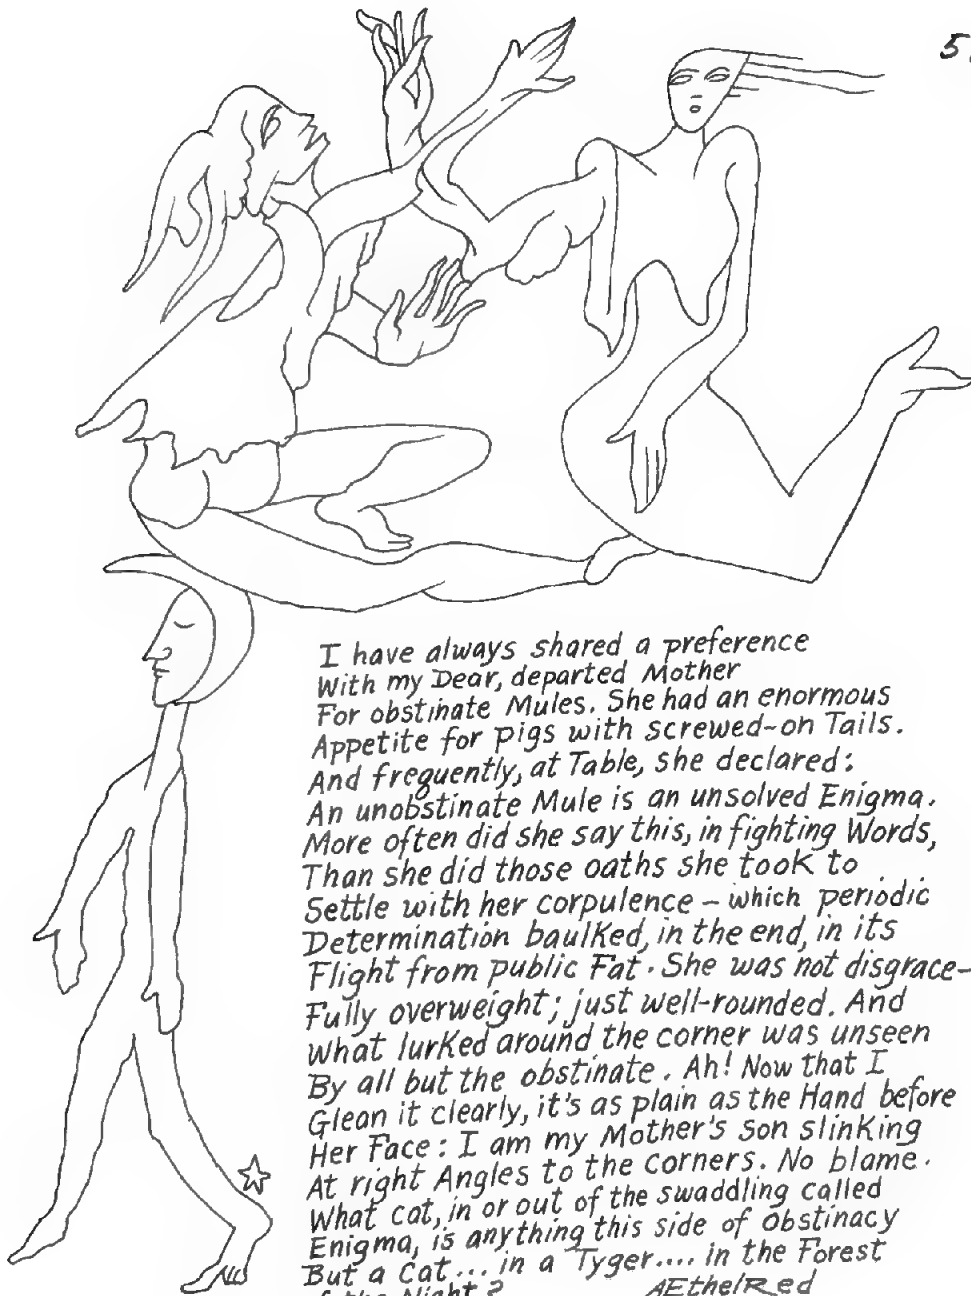 5.
I have always shared a preference
With my Dear, departed Mother
For obstinate Mules. She had an enormous
Appetite for pigs with screwed-on Tails.
And frequently, at Table, she declared:
An unobstinate Mule is an unsolved Enigma.
More often did she say this, in fighting Words,
Than she did those oaths she took to
Settle with her corpulence – which periodic
Determination baulked, in the end, in its
Flight from public Fat. She was not disgrace-
Fully overweight; just well-rounded. And
What lurked around the corner was unseen
By all but the obstinate. Ah! Now that I
Glean it clearly, it's as plain as the Hand before
Her Face: I am my Mother's son slinking
At right Angles to the Corners. No blame.
What cat, in or out of the swaddling called
Enigma, is anything this side of Obstinacy
But a Cat... in a Tyger.... in the Forest
of the Night?
AEthelRed